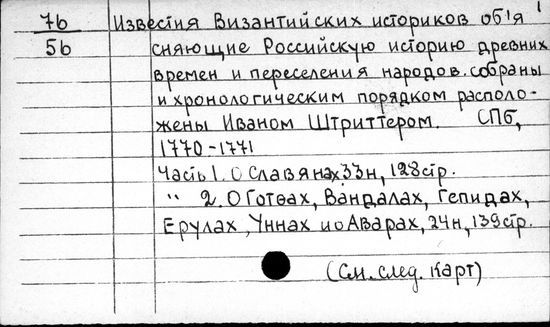 1
7б Известiя Византийских историков об'я
5б сняющие Российскую историю древних
времен и переселения народов. собраны
и хронологическим порядком располо-
жены Иваном Штриттером. СПб,
1770-1771
Часть 1. О Славянах 33н, 128стр.
" 2. О Готѳах, Вандалах, Гепидах,
Ерулах, Уннах и о Аварах, 24н, 139стр.
(См. след. карт)